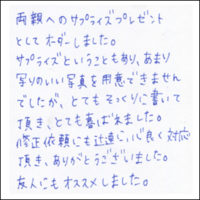 両親へのサプライズプレゼント
としてオーダーしました。
サプライズということもあり、あまり
写りのいい写真を用意できません
でしたが、とてもそっくりに書いて
頂き、とても喜ばれました。
修正依頼にも迅速に、心良く対応
頂き、ありがとうございました。
友人にもオススメしました。